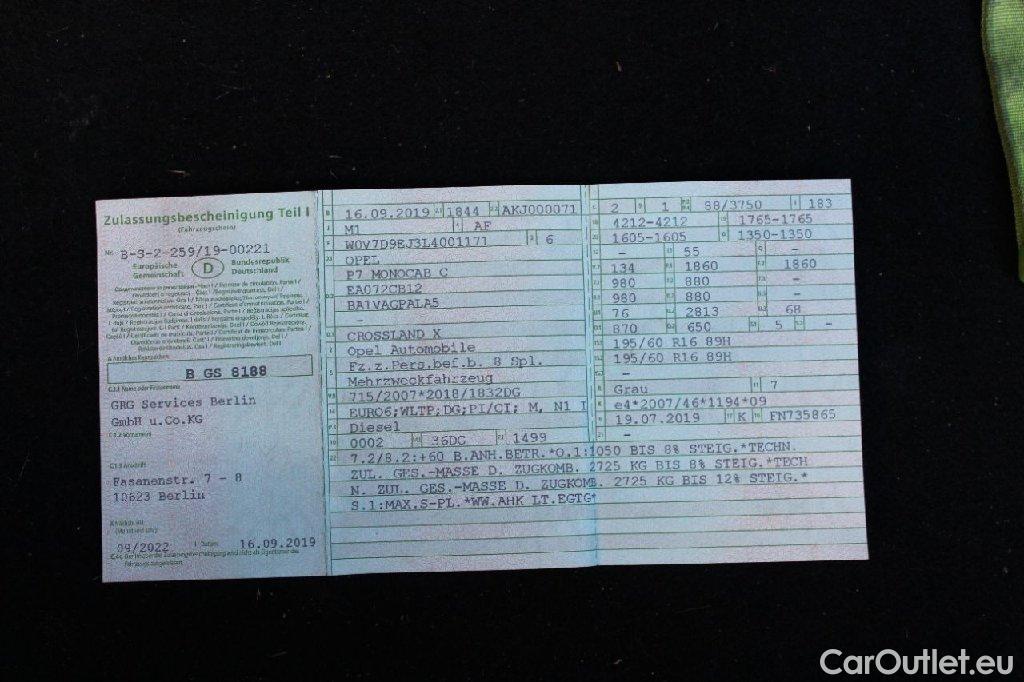 Zulassungsbescheinigung Teil I
(Fahrzeugschein)
Nr. B-3-2-259/19-00221
Europäische Gemeinschaft
D
Bundesrepublik Deutschland
B GS 8188
GRG Services Berlin
GmbH u.Co.KG
Fasanenstr. 7 - 8
10623 Berlin
09/2022
16.09.2019
16.09.2019 1844 AKJ000071
M1 AF
W0V7D9EJ3L4001171 6
OPEL
P7 MONOCAB C
EA072CB12
BA1VAGPALA5
-
CROSSLAND X
Opel Automobile
Fz.z.Pers.bef.b. 8 Spl.
Mehrzweckfahrzeug
715/2007*2018/1832DG
EURO6;WLTP;DG;PI/CI; M, N1 I
Diesel
0002 36DG 1499
2 1 88/3750 183
4212-4212 1765-1765
1605-1605 1350-1350
- 55 -
134 1860 1860
980 880 -
980 880 -
76 2813 68
870 650 5 -
195/60 R16 89H
195/60 R16 89H
-
Grau 7
e4*2007/46*1194*09
19.07.2019 K FN735865
-
7.2/8.2:+60 B.ANH.BETR.*O.1:1050 BIS 8% STEIG.*TECHN.
ZUL. GES.-MASSE D. ZUGKOMB. 2725 KG BIS 8% STEIG.*TECH
N. ZUL. GES.-MASSE D. ZUGKOMB. 2725 KG BIS 12% STEIG.*
S.1:MAX.S-PL.*WW.AHK LT.EGTG*
CarOutlet.eu